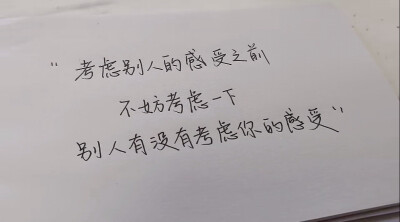 “考虑别人的感受之前
不妨考虑一下
别人有没有考虑你的感受”